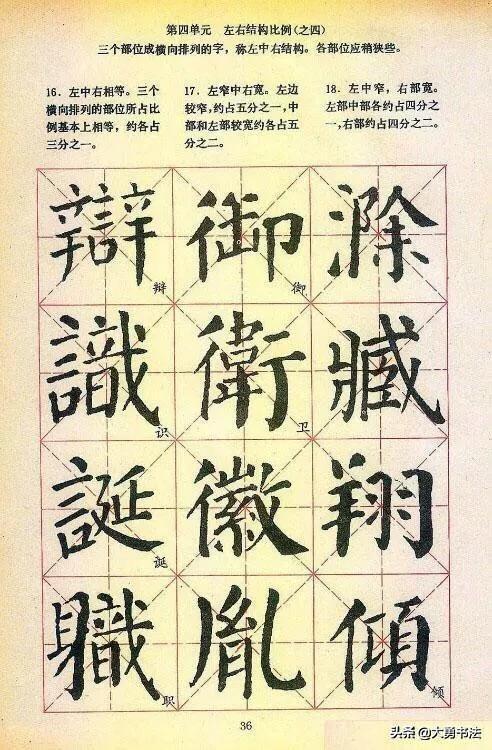 第四单元 左右结构比例(之四)
三个部位成横向排列的字，称左中右结构。各部位应稍狭些。
16. 左中右相等。三个
横向排列的部位所占比
例基本上相等，约各占
三分之一。
17. 左窄中右宽。左边
较窄，约占五分之一，中
部和左部较宽约各占五
分之二。
18. 左中窄，右部宽。
左部中部各约占四分之
一，右部约占四分之二。
辯 辩 御 御 滁
識 识 衛 卫 臧
誕 诞 徽 翔
職 职 胤 傾 倾
36
头条 @大勇书法